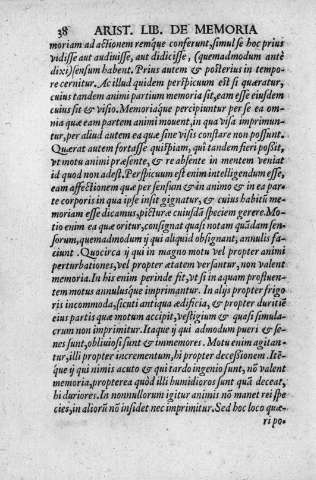 38 ARIST. LIB. DE MEMORIA
moriam ad actionem remq́ue conferunt, simul se hoc prius
vidisse aut audiuisse, aut didicisse, (quemadmodum antè
dixi) sensum habent. Prius autem & posterius in tempo-
re cernitur. Ac illud quidem perspicuum est si quæratur,
cuius tandem animi partium memoria sit, eam esse eiusdem
cuius sit & visio. Memoriaq́ue percipiuntur per se ea om-
nia quæ eam partem animi mouent, in qua visa imprimun-
tur, per aliud autem ea quæ sine visis constare non possunt.
Quærat autem fortasse quispiam, qui tandem fieri possit,
vt motu animi præsente, & re absente in mentem veniat
id quod non adest. Perspicuum est enim intelligendum esse,
eam affectionem quæ per sensum & in animo & in ea par-
te corporis in qua ipse insit gignatur, & cuius habitū me-
moriam esse dicamus, picturæ cuiusdā speciem gerere. Mo-
tio enim ea quæ oritur, consignat quasi notam quādam sen-
sorum, quemadmodum ij qui aliquid obsignant, annulis fa-
ciunt. Quocirca ij qui in magno motu vel propter animi
perturbationes, vel propter ætatem versantur, non valent
memoria. In his enim perinde fit, vt si in aquam profluen-
tem motus annulusque imprimantur. In alijs propter frigo
ris incommoda, sicuti antiqua ædificia, & propter duritiē
eius partis quæ motum accipit, vestigium & quasi simula-
crum non imprimitur. Itaque ij qui admodum pueri & se-
nes sunt, obliuiosi sunt & immemores. Motu enim agitan-
tur, illi propter incrementum, hi propter decessionem. Itē-
que ij qui nimis acuto & qui tardo ingenio sunt, nō valent
memoria, propterea quòd illi humidiores sunt quā deceat,
hi duriores. In nonnullorum igitur animis nō manet rei spe
cies, in aliorū nō insidet nec imprimitur. Sed hoc loco quæ-
ri po-